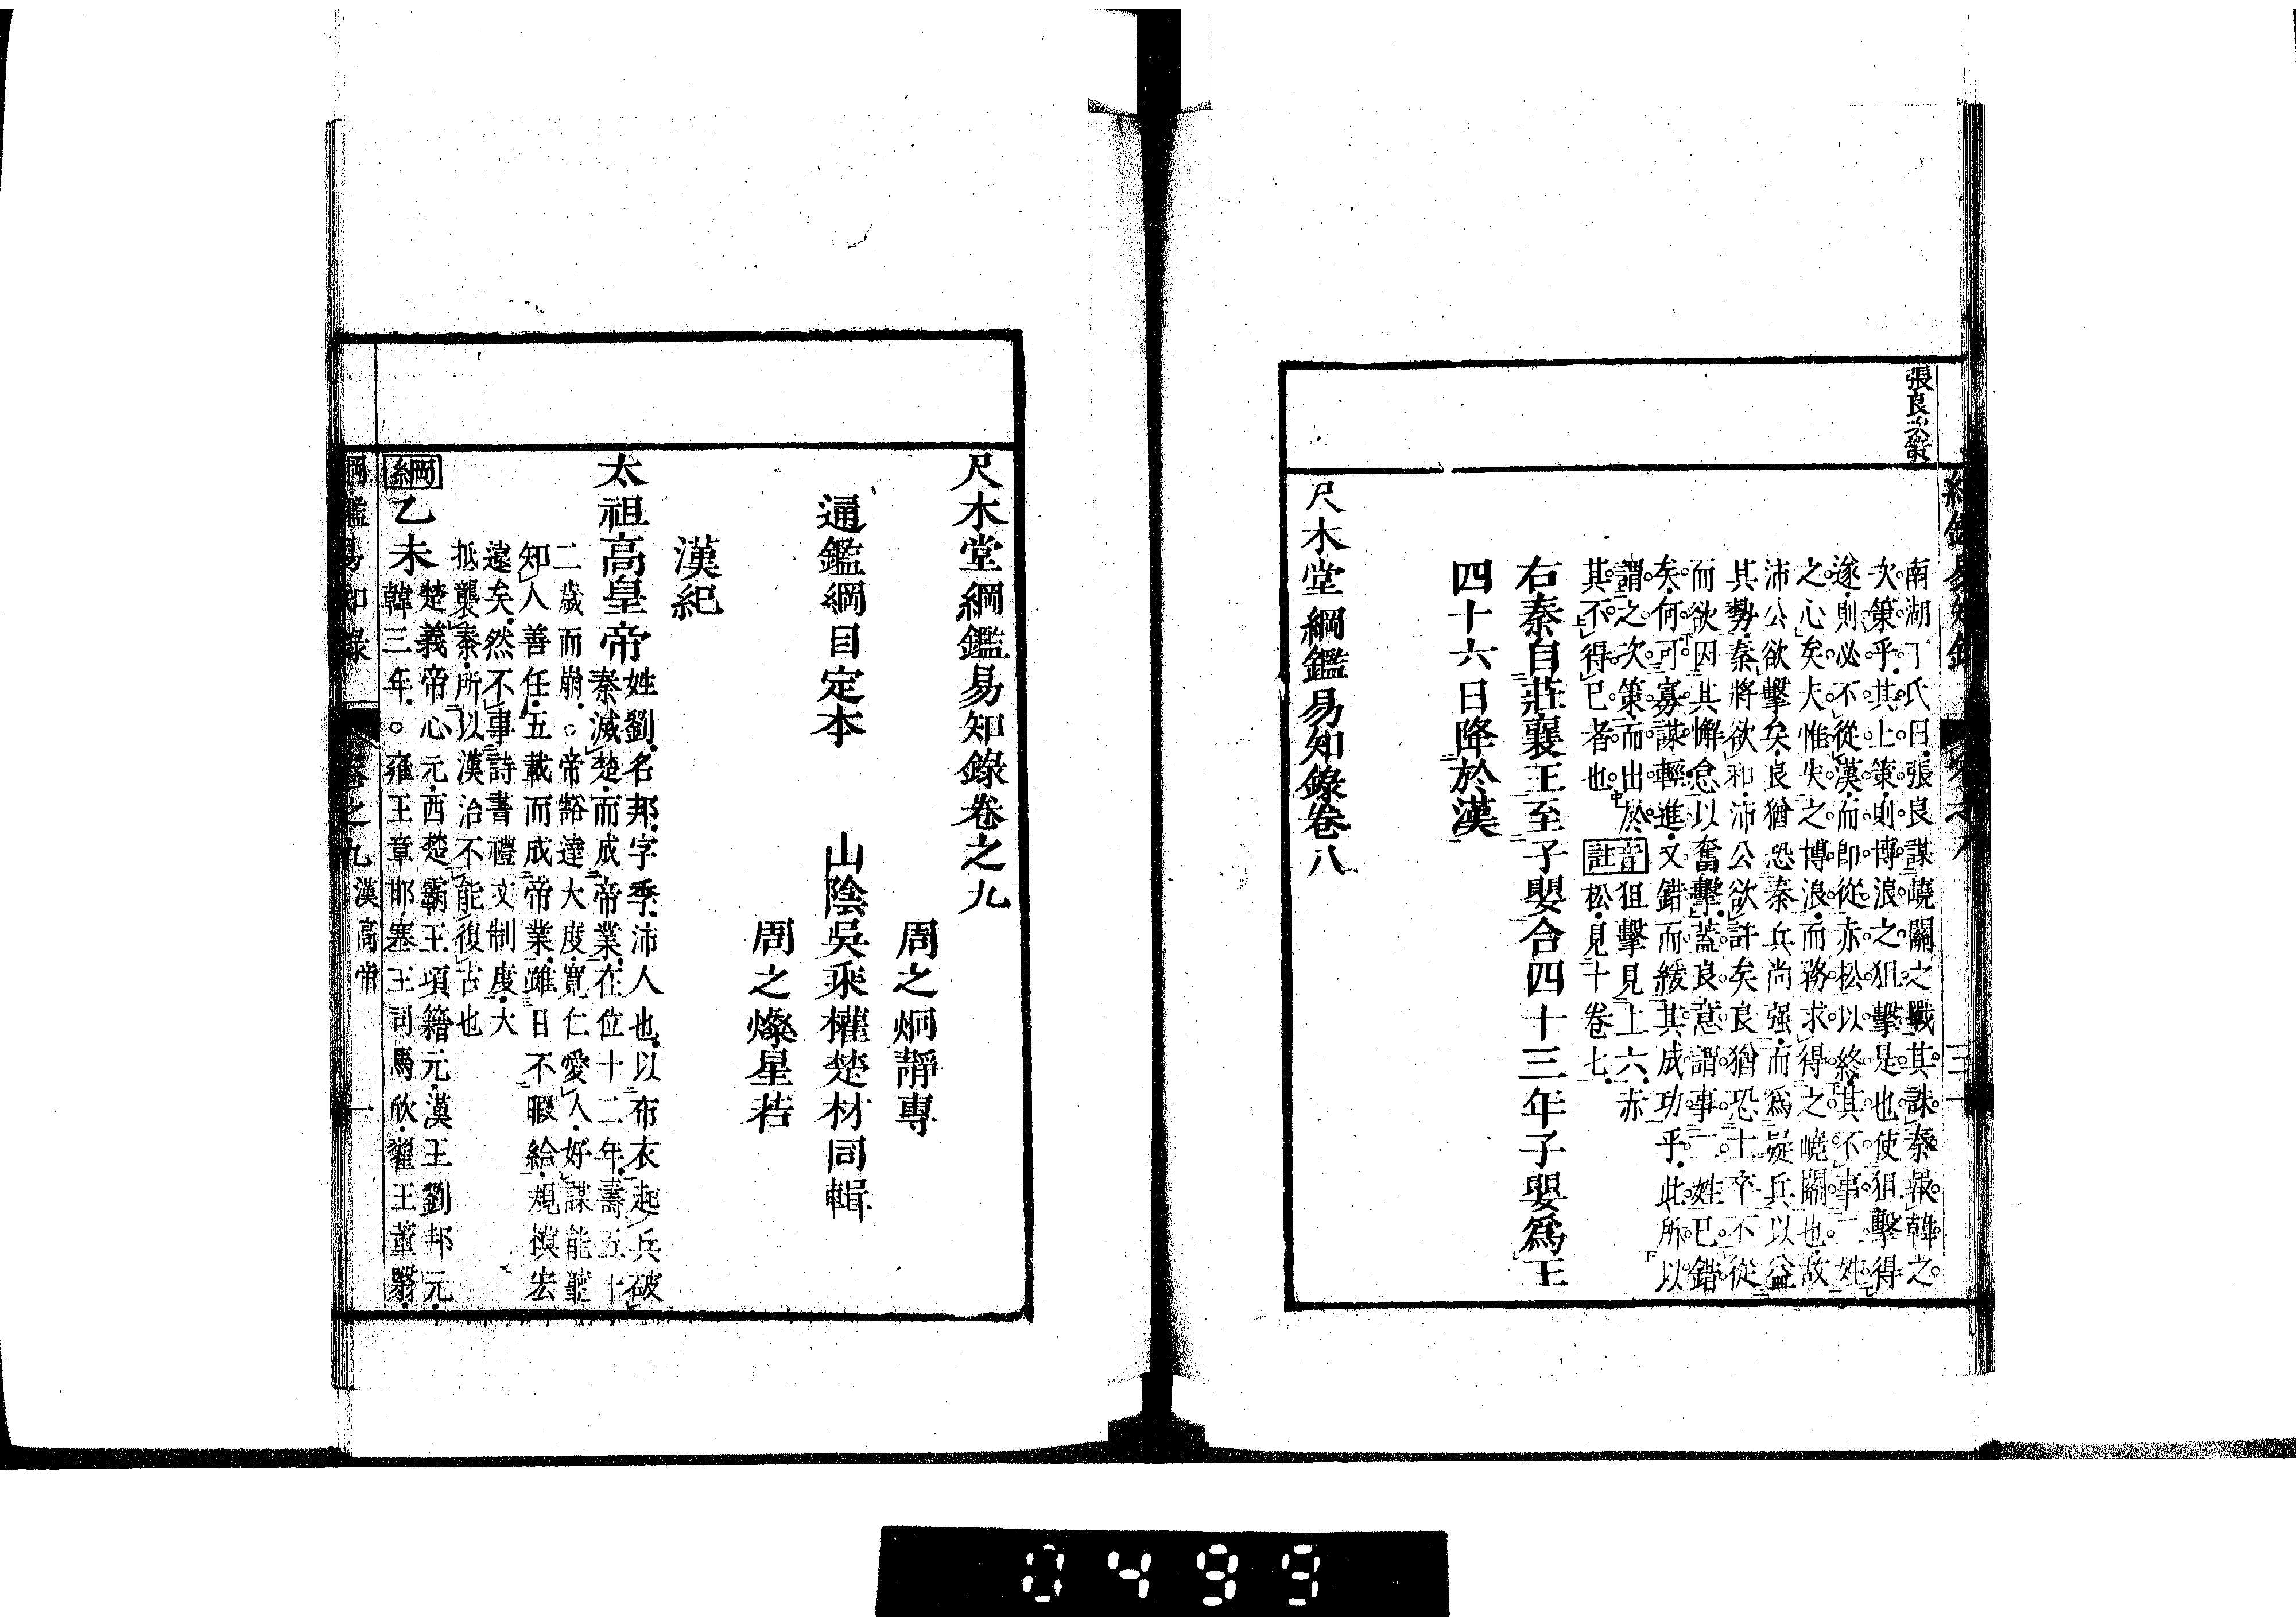 張良次策
南湖丁氏曰張良謀嶢關之戰其誅秦報韓之
次策乎其上策則博浪之狙擊是也使狙擊得
遂則必不從漢而即從赤松以終其不事二姓
之心矣夫惟失之博浪而務求得之嶢關也故
沛公欲擊矣良猶恐秦兵尚强而爲疑兵以益
其勢秦將欲和沛公欲許矣良猶恐士卒不從
而欲因其懈怠以奮擊蓋良意謂事二姓已錯
矣何可寡謀輕進又錯而緩其成功乎此所以
謂之次策而出於
其不得已者也
音狙擊見上六赤
註松見十卷七
右秦自莊襄王至子嬰合四十三年子嬰爲王
四十六日降於漢
尺木堂綱鑑易知錄卷八
尺木堂綱鑑易知錄卷之九
周之炯靜專
通鑑綱目定本　山陰吳乘權楚材同輯
周之燦星若
漢紀
太祖高皇帝
姓劉名邦字季沛人也以布衣起兵破
秦滅楚而成帝業在位十二年壽五十
二歲而崩○帝豁達大度寬仁愛人好謀能聽
知人善任五載而成帝業雖日不暇給規模宏
遠矣然不事詩書禮文制度大
抵襲秦所以漢治不能復古也
綱乙未
楚義帝心元西楚霸王項籍元漢王劉邦元
韓三年○雍王章邯塞王司馬欣翟王董翳
綱鑑易知錄　卷之九　漢高帝　一